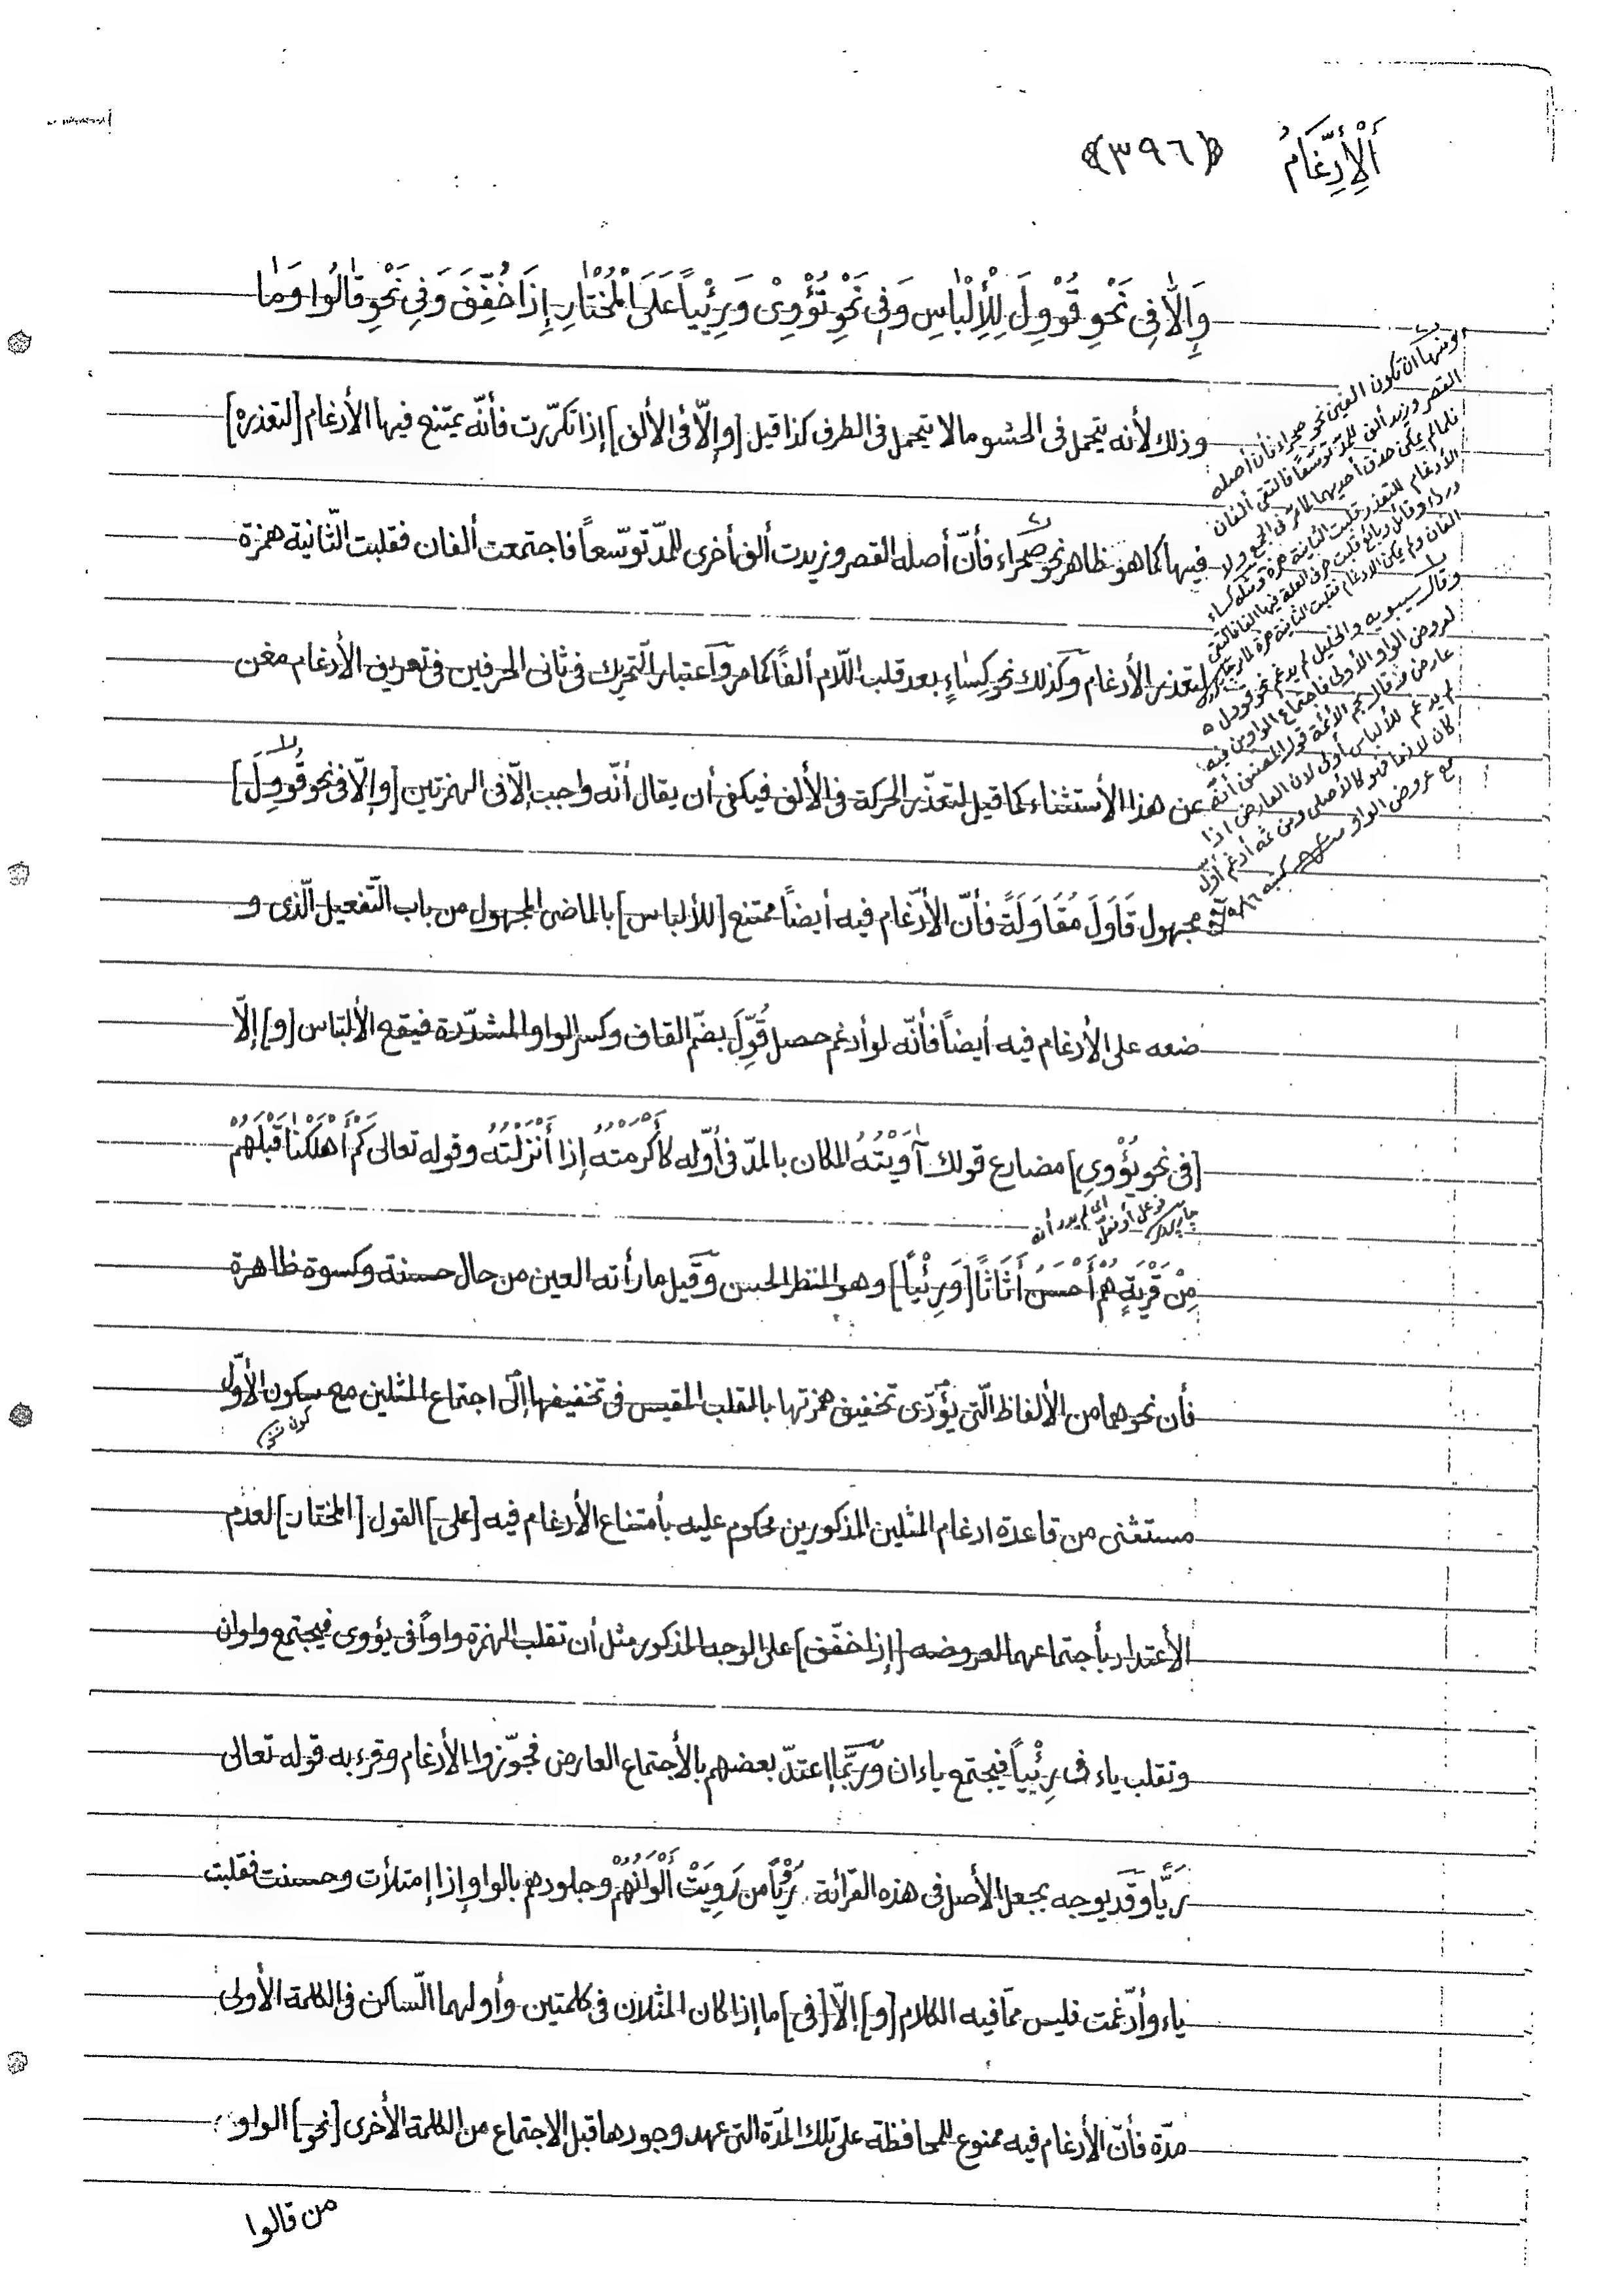 أَلْأِدِّغَامُ ﴿٣٩٦﴾
وَإِلَّا فِى نَحْوِ قُوْوِلَ لِلْأِلْبَاسِ وَفِى نَحْوِ تُؤْوِىْ وَرِئْيَاً عَلَى الْمُخْتَارِ إِذَا خُفِّفَ وَفِى نَحْوِ قَالُوا وَمَا
وذلك لأنه يتحمل فى الحشو ما لا يتحمل فى الطرف كذا قيل [وإلّا فى الألف] إذا تكرّرت فأنّه يمتنع فيها الأدغام [لتعذره]
فيها كما هو ظاهر نحو صحراء فأنّ أصله القصر وزيدت ألف أخرى للمدّ توسّعاً فاجتمعت ألفان فقلبت الثّانية همزة
لتعذر الأدغام وكذلك نحو كِسَاءٍ بعد قلب اللّام ألفاً كما مر وأعتبار التّحريك فى ثانى الحرفين فى تعريف الأدغام مغن
عن هذا الأستثناء كما قيل لتعذّر الحركة فى الألف فيكفى أن يقال أنّه واجب إلّا فى الهمزتين [وإلّا فى نحو قُووِلَ]
مجهول قَاوَلَ مُقَاوَلَةً فأنّ الأدّغام فيه أيضاً ممتنع [للألباس] بالماضى المجهول من باب التّفعيل الّذى و
ضعه على الأدغام فيه أيضاً فأنّه لو أدغم حصل قُوِّلَ بضمّ القاف وكسر الواو المشدّدة فيقع الألتباس [و] إلّا
[فى نحو تُؤْوِى] مضارع قولك آوَيْتُهُ المكان بالمدّ فى أوّله كأَكْرَمْتُهُ إذا أَنْزَلْتُهُ وقوله تعالى كَمْ أَهْلَكْنَا قَبْلَهُمْ
مِنْ قَرْيَةٍ هُمْ أَحْسَنُ أَثَاثَاً [وَرِئْيَاً] وهو المنظر الحسن وقيل ما رأته العين من حال حسنة وكسوة ظاهرة
فأن نحوهما من الألفاظ الّتى يؤدّى تخفيف همزتها بالقلب المقيس فى تخفيفها إلى اجتماع المثلين مع سكون الأوّل
مستثنى من قاعدة ادغام المثلين المذكورين محكوم عليه بأمتناع الأدغام فيه [على] القول [المختار] لعدم
الأعتداد بأجتماعهما لعروضه [إذا خفّف] على الوجه المذكور مثل أن تقلب الهمزة واواً فى يؤوى فيجتمع واوان
وتقلب ياء فى رِئْيَاً فيجتمع ياءان وربّما إعتدّ بعضهم بالأجتماع العارض فجوّزوا الأدغام وقرء به قوله تعالى
رِيَّا وقد يوجه بجعل الأصل فى هذه القرائة رِوْيَاً من رَوِيَتْ أَلْوَانُهُمْ وجلودهم بالواو إذا إمتلأت وحسنت فقلبت
ياء وأدّغمت فليس ممّا فيه الكلام [و] إلّا [فى] ما إذا كان المثلان فى كلمتين وأولهما السّاكن فى الكلمة الأولى
مدّة فأنّ الأدغام فيه ممنوع للمحافظة على تلك المدّة التى عهد وجودها قبل الاجتماع من الكلمة الأخرى [نحو] الواو
من قالوا
ومنها ان تكون العين نحو صحراء فأن أصله
القصر وزيد ألف للمد توسّعاً فالتقى ألفان
فلما لم يمكن حذف أحديهما لما مرّ فى الجمع ولا
الأدغام للتعذر قلبت الثانية همزة ومثله كساء
ورداء وقائل وبائع قلبت حرف العلة فيها الفا فالتقى
الفان ولم يمكن الادغام فقلبت الثانية همزة لما مر
وقال سيبويه والخليل لم يدغم نحو قوول
لعروض الواو الأولى فاجتماع الواوين فيه
عارض وقال نجم الأئمة قول المصنف أنّه
لم يدغم للألباس أولى لان العارض اذا
كان لازما فهو كالأصلى ومن ثمة أدغم أوّل
مع عروض الواو